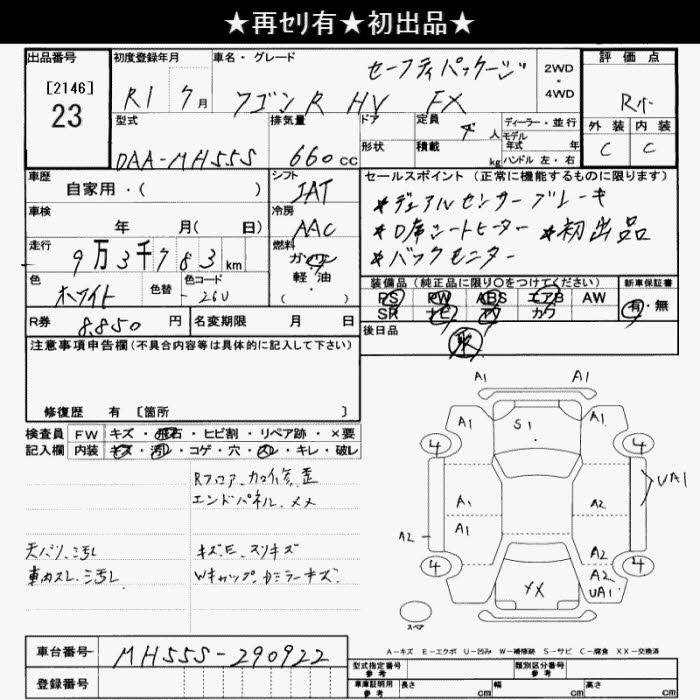 ★再セリ有★初出品★
出品番号 初度登録年月 車名・グレード 評価点
[2146] 23
R1 7月 ワゴンR HV FX セーフティパッケージ 2WD・4WD R小
型式 排気量 ドア 定員 人 ディーラー・並行 外装 内装
DAA-MH55S 660cc 形状 積載 kg モデル年式 年 ハンドル 左・右 C C
車歴 自家用・( ) シフト IAT
車検 年 月( 日) 冷房 AAC
走行 9万3千783km 燃料 ガソリン 軽油 ( ・ )
色 ホワイト 色替 色コード 26U
R券 8.850円 名変期限 月 日
セールスポイント(正常に機能するものに限ります)
★デュアルセンサーブレーキ
★D席シートヒーター ★初出品
★バックモニター
装備品(純正品に限り○をつけてください) 新車保証書
PS PW ABS エアB AW 有・無
SR ナビ TV カワ
後日品 取
注意事項申告欄(不具合内容等は具体的に記入して下さい)
修復歴 有 [箇所 ]
検査員 FW キズ・飛石・ヒビ割・リペア跡・×要
記入欄 内装 キズ・汚レ・コゲ・穴・スレ・キレ・破レ
Rフロア、カコイ修、歪
エンドパネル、メメ
天バリ、ニ汚レ キズE、スリキズ
車内スレ、ニ汚レ Wキャップ、Dミラーキズ
A1 A1
A1 S1 A1
4 4
A1 A2 UA1
A2 A1
A2
4 XX A2 4
UA1
スペア
A-キズ E-エクボ U-凹み W-補修跡 S-サビ C-腐食 XX-交換済
車台番号 MH55S-290922
登録番号
型式指定番号 参考 類別区分番号 参考
車庫証明用 参考 長さ cm 幅 cm 高さ cm